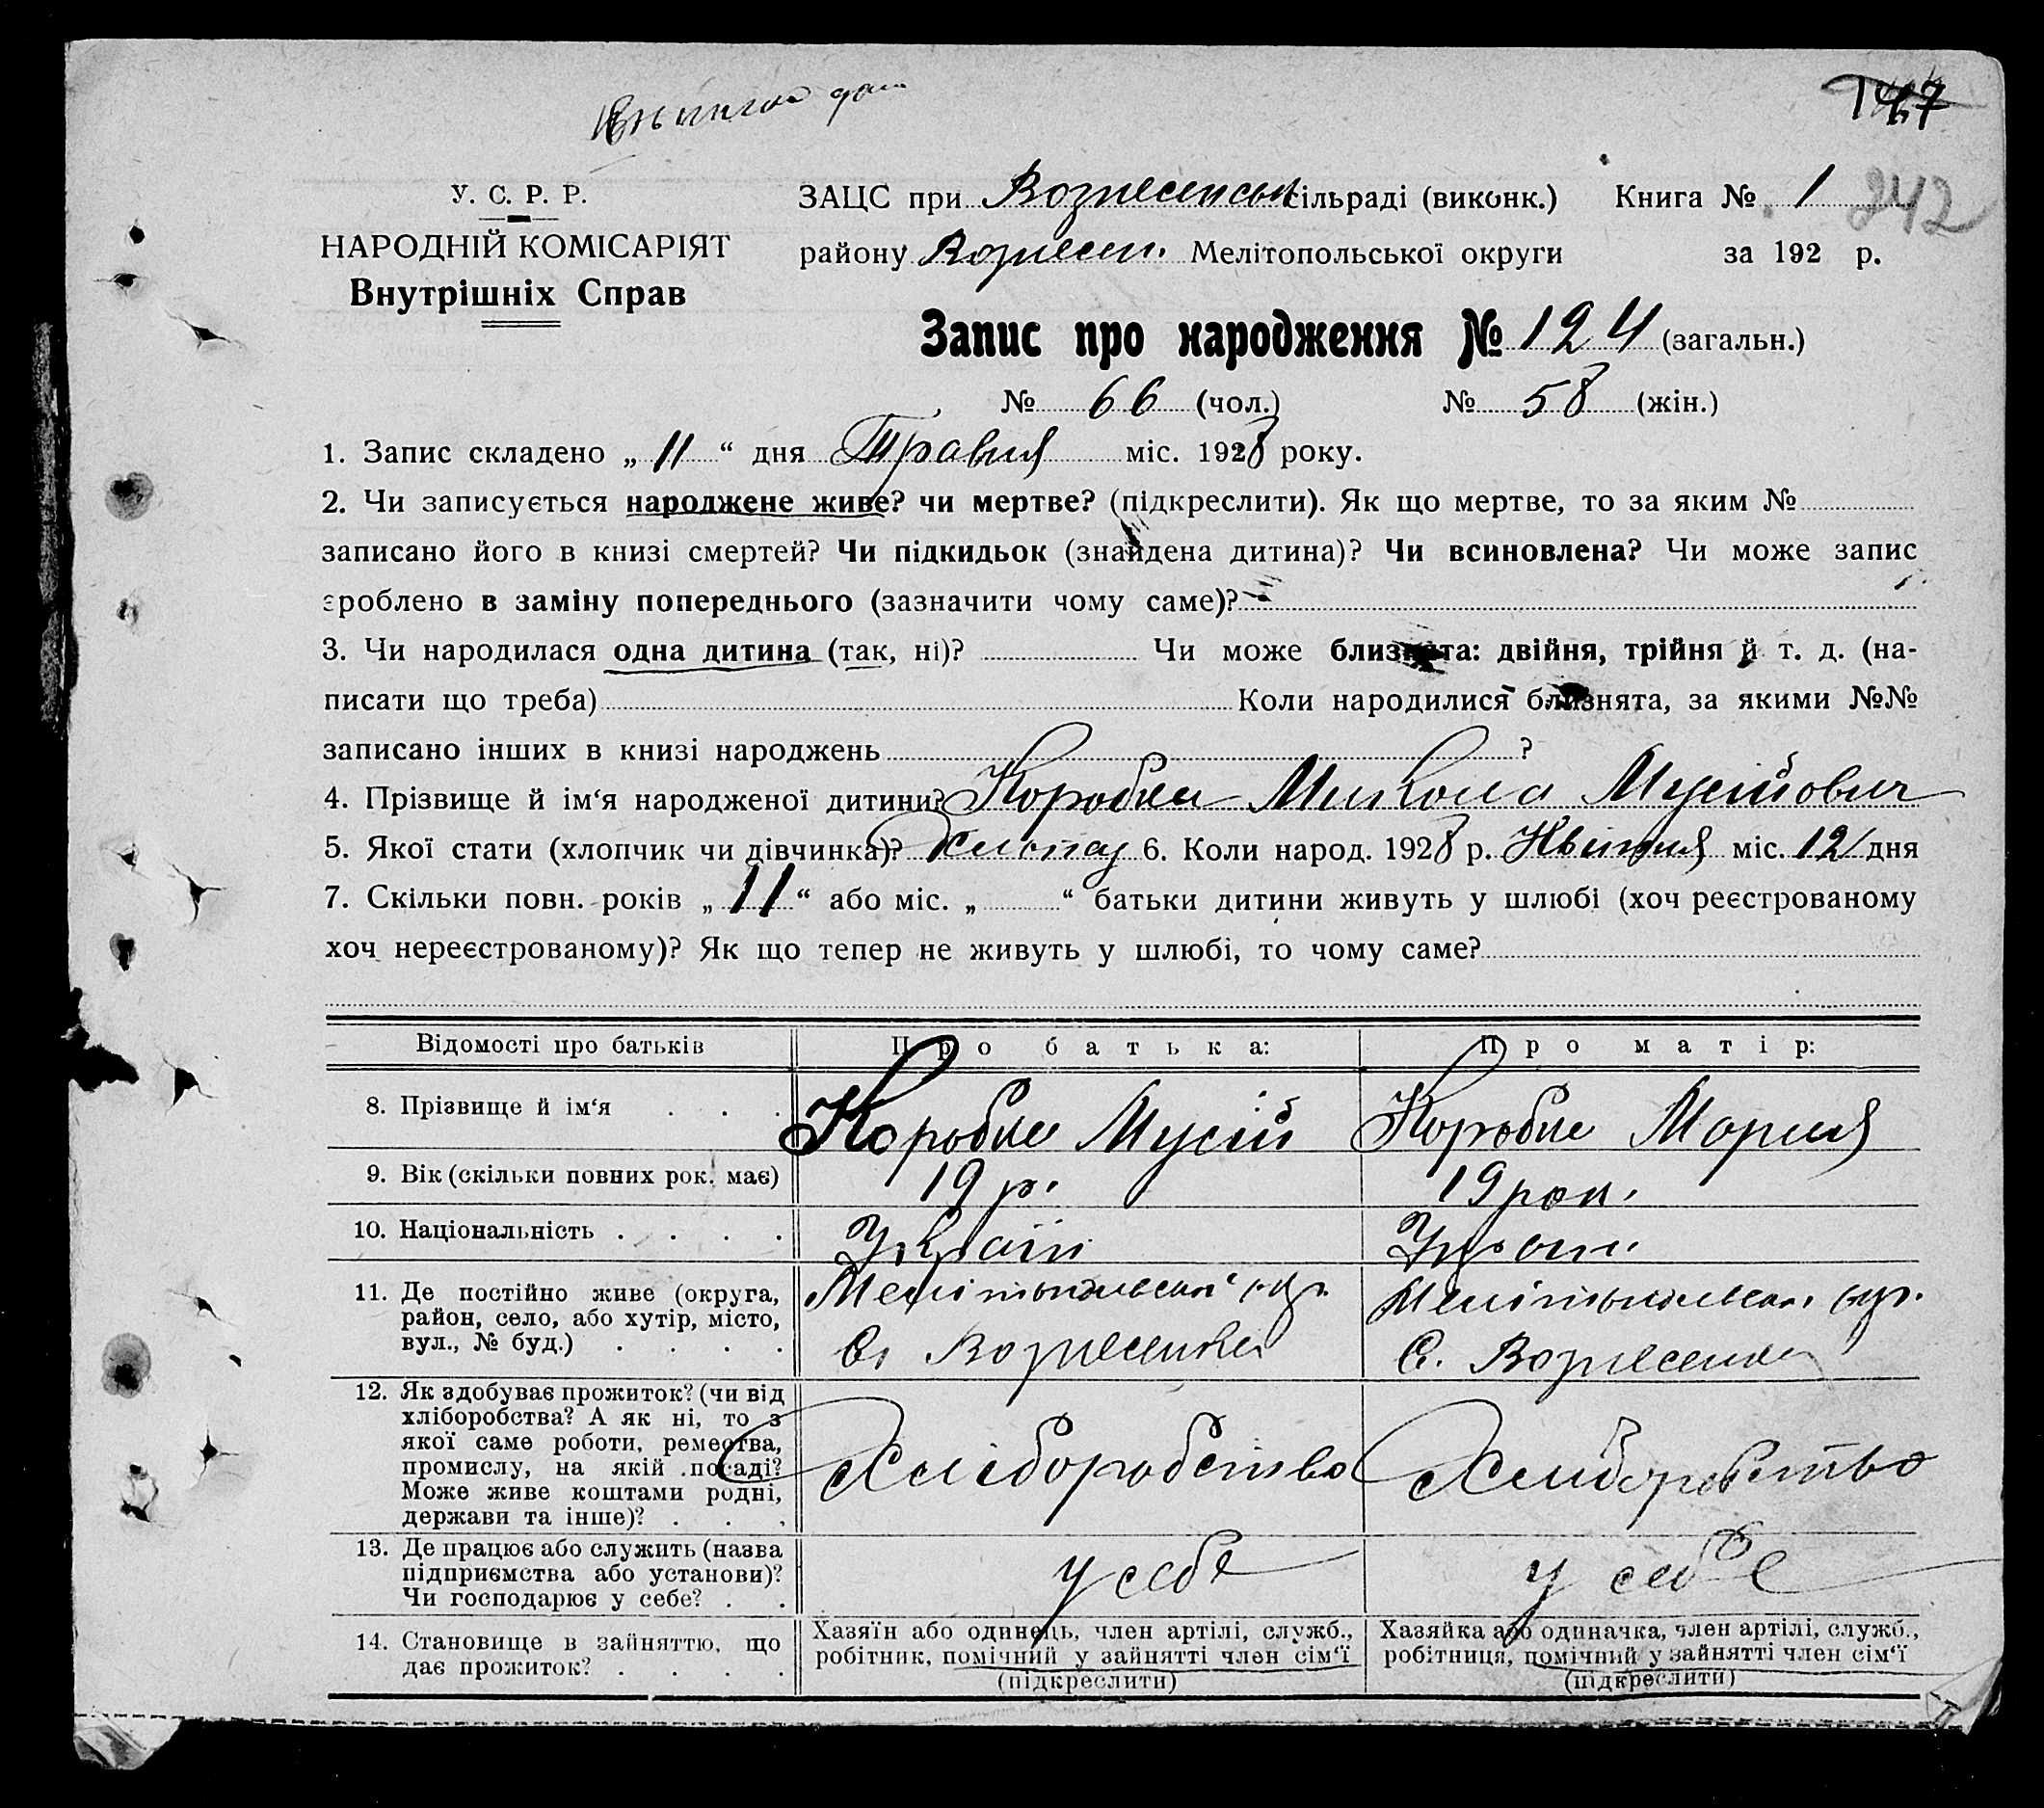 147
У. С. Р. Р.
НАРОДНІЙ КОМІСАРІЯТ
Внутрішніх Справ
ЗАЦС при Вознесенськ сільраді (виконк.) Книга № 1 242
району Вознесен. Мелітопольської округи за 192 р.
Запис про народження № 124 (загальн.)
№ 66 (чол.) № 58 (жін.)
1. Запис складено „ 11 “ дня Травня міс. 1928 року.
2. Чи записується народжене живе? чи мертве? (підкреслити). Як що мертве, то за яким №
записано його в книзі смертей? Чи підкидьок (знайдена дитина)? Чи всиновлена? Чи може запис
зроблено в заміну попереднього (зазначити чому саме)?
3. Чи народилася одна дитина (так, ні)? Чи може близнята: двійня, трійня й т. д. (на-
писати що треба) Коли народилися близнята, за якими №№
записано інших в книзі народжень ?
4. Прізвище й ім‘я народженої дитини? Коробка Микола Мусійович
5. Якої стати (хлопчик чи дівчинка)? Хлопец 6. Коли народ. 1928 р. Квітня міс. 12 дня
7. Скільки повн. років „ 11 “ або міс. „ “ батьки дитини живуть у шлюбі (хоч реєстрованому
хоч нереєстрованому)? Як що тепер не живуть у шлюбі, то чому саме?
Відомості про батьків Про батька: Про матір:
8. Прізвище й ім‘я . . . Коробка Мусій Коробка Мария
9. Вік (скільки повних рок. має) 19 р. 19 рок.
10. Національність . . . . Україн Украін.
11. Де постійно живе (округа,
район, село, або хутір, місто,
вул., № буд.) . . . .
Мелітопольськ окр.
С. Вознесенка
Мелітопольськ. окр.
С. Вознесенка
12. Як здобуває прожиток? (чи від
хліборобства? А як ні, то з
якої саме роботи, ремества,
промислу, на якій посаді?
Може живе коштами родні,
держави та інше)? . . .
Хліборобство Хліборобство
13. Де працює або служить (назва
підприємства або установи)?
Чи господарює у себе? . .
у себе у себе
14. Становище в зайняттю, що
дає прожиток? . . . .
Хазяїн або одинець, член артілі, служб.,
робітник, помічний у зайнятті член сім‘ї
(підкреслити)
Хазяйка або одиначка, член артілі, служб.,
робітниця, помічний у зайнятті член сім‘ї
(підкреслити)